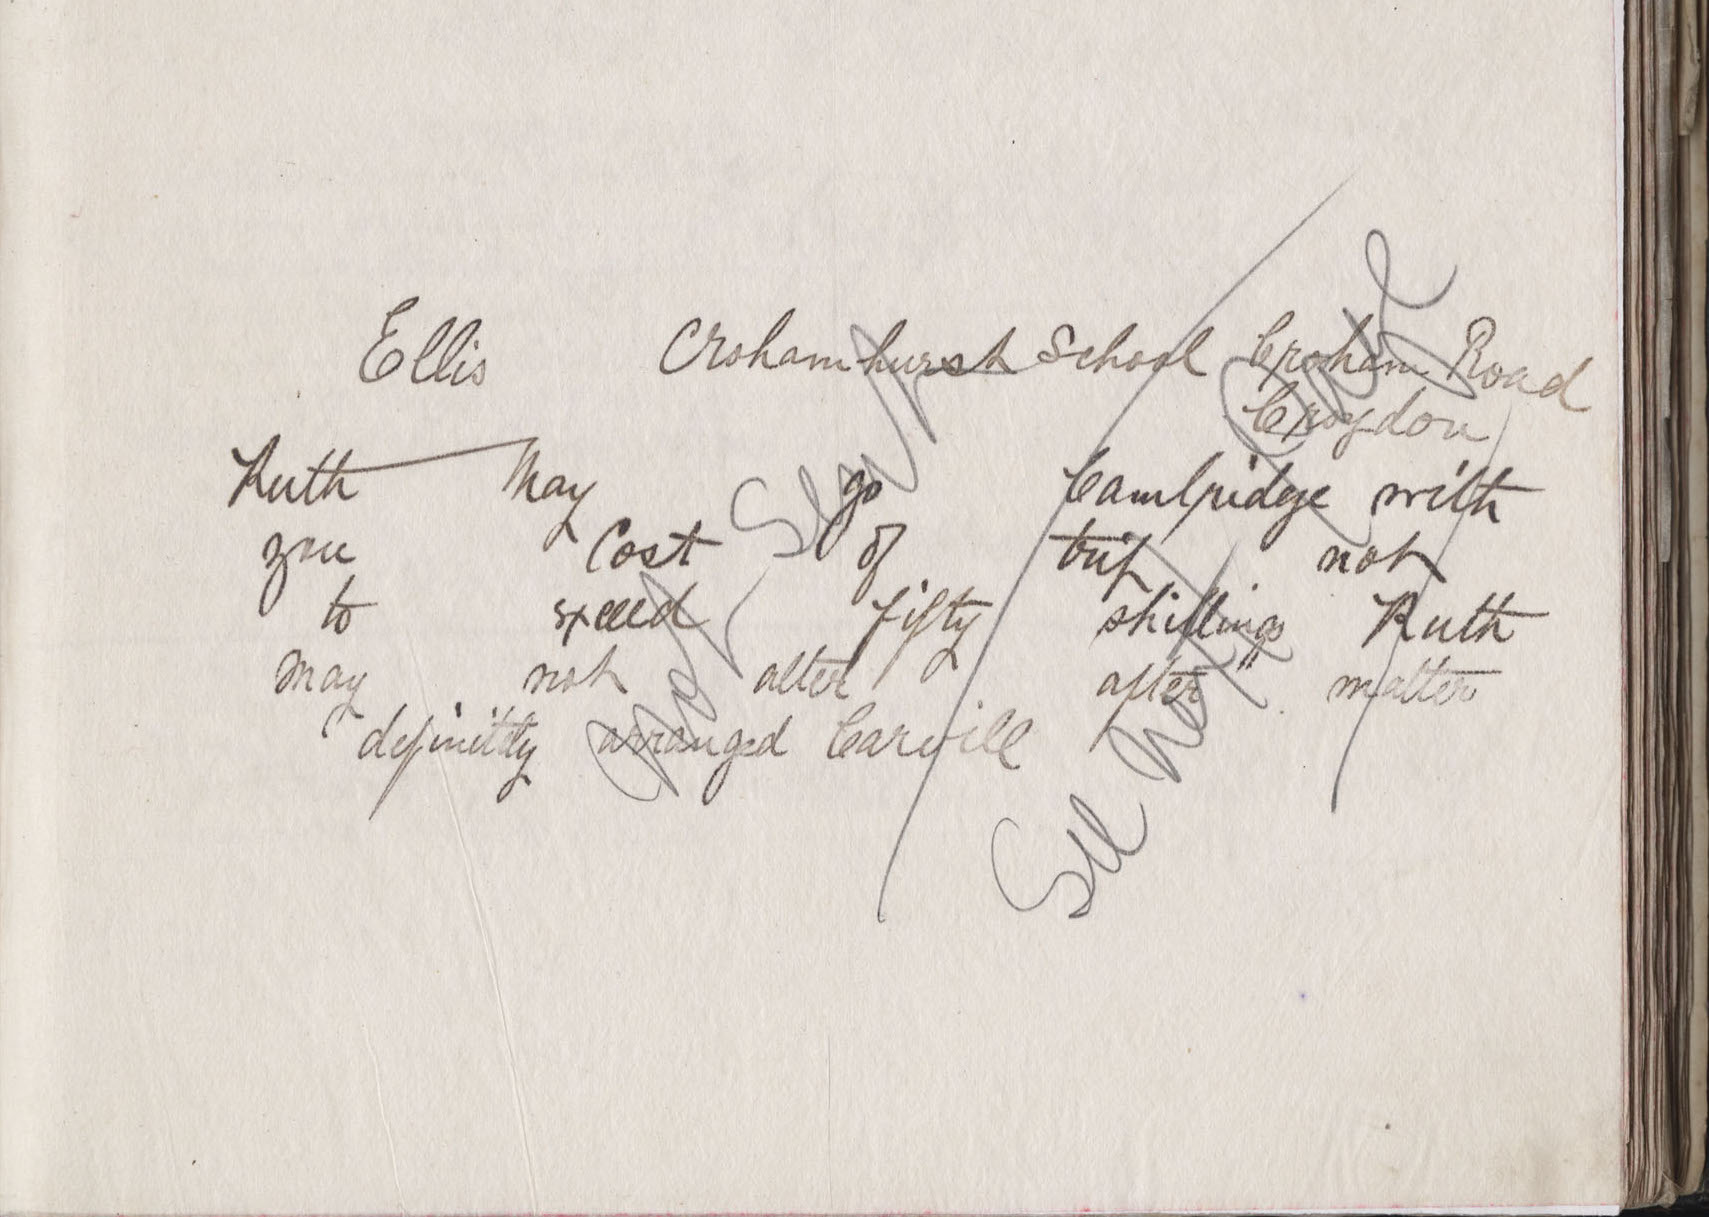 Ellis Crohamhurst School Croham Road
Croydon
Ruth May go Cambridge with
you Cost of trip not
to exceed fifty shillings Ruth
may not alter after matter
definitely arranged Carvill
Not Sent
See next page